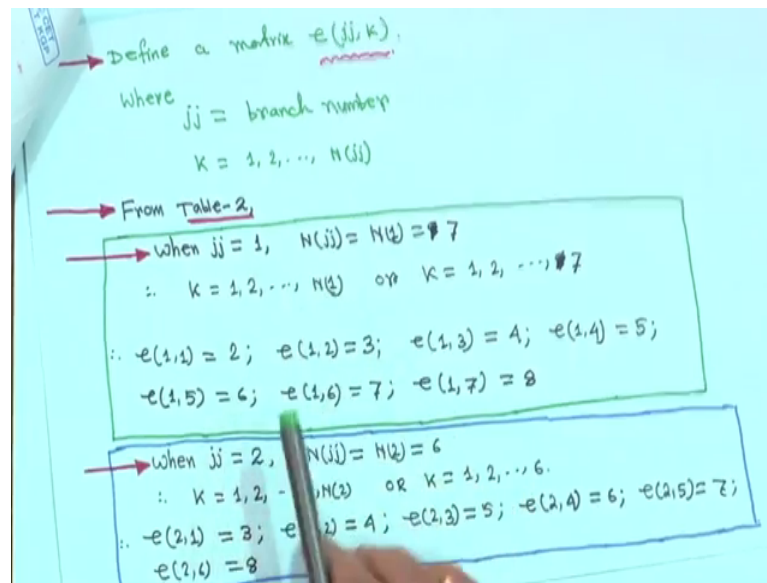 CET
KGP
Define a matrix e(jj,k).
Where
jj = branch number
K = 1, 2, ..., N(jj)
From Table-2,
When jj = 1, N(jj) = N(1) = 7
∴ K = 1, 2, ..., N(1) or K = 1, 2, ..., 7
∴ e(1,1) = 2; e(1,2) = 3; e(1,3) = 4; e(1,4) = 5;
e(1,5) = 6; e(1,6) = 7; e(1,7) = 8
When jj = 2, N(jj) = N(2) = 6
∴ K = 1, 2, - , N(2) OR K = 1, 2, .., 6.
∴ e(2,1) = 3; e 2) = 4; e(2,3) = 5; e(2,4) = 6; e(2,5) = 7;
e(2,6) = 8